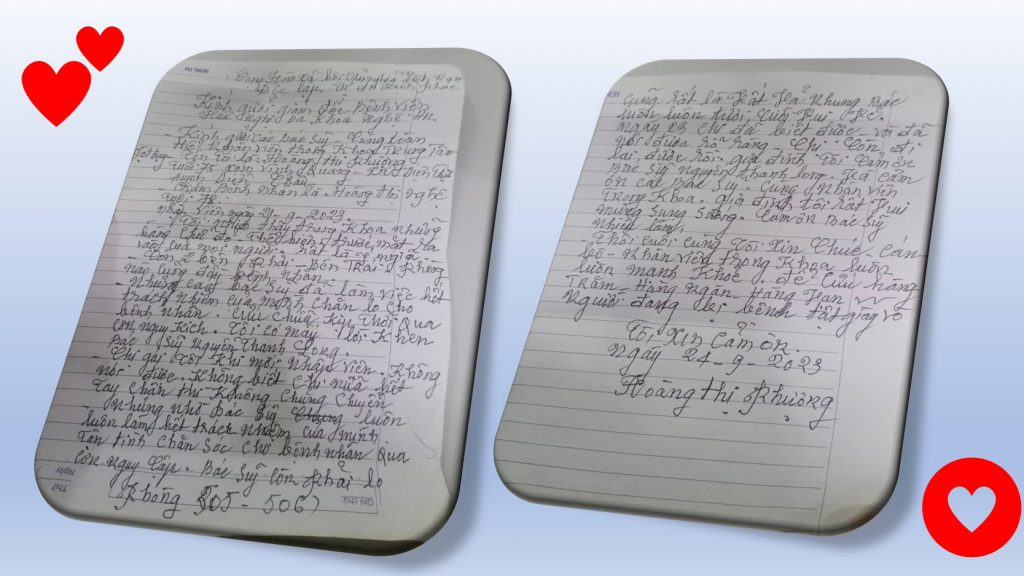 Cộng Hòa Xã hội Chủ nghĩa Việt Nam
Độc lập Tự do Hạnh Phúc
Kính gửi giám đốc Bệnh Viện
Hữu Nghị Đa Khoa Nghệ An
- Kính gửi các bác sỹ - Cùng toàn
thể Nhân viên trong Khoa Trung Tâm
Tên tôi là: Hoàng Thị Phương
Tuổi xóm Vinh Quang -
Châu
- Thân Bệnh Nhân là. Hoàng Thị Nghệ
Tuổi
Nhập Viện ngày 21-9-2023.
Tôi Thấy trong Khoa những
hàng chữ đỏ - Thể hiện trước mắt ra
vào của mọi người - Rất là ý nghĩa
- Còn 2 bên Phải - Bên Trái. Phòng
nào cũng đầy bệnh nhân.
- Nhưng các bác sỹ đã làm việc hết
trách nhiệm của mình chăm lo cho
bệnh nhân. Cứu chữa kịp thời qua
cơn nguy kịch. Tôi có mấy lời khen
Bác Sỹ Nguyễn Thanh Long.
- Chị gái Tôi Khi mới Nhập Viện - Không
nói được. Không biết chi nữa hết
Tay chân thì Không chúng chuyển
- Nhưng nhờ Bác Sỹ luôn
luôn làm hết trách nhiệm của mình
Tận tình chăm sóc cho bệnh nhân qua
cơn nguy cấp. Bác Sỹ còn phải lo
Phòng 505 - 506)
Cũng rất là vất vả nhưng Bác
luôn luôn tươi cười vui vẻ.
ngày 23 chị đã biết được - và đã
nói được rõ ràng - Chị còn đi
lại được rồi gia đình Tôi cảm ơn
Bác sỹ nguyễn thanh long. và cảm
ơn các Bác Sỹ - Cùng Nhân Viên
Trong Khoa. gia đình tôi rất vui
mừng sung sướng. Cảm ơn Bác Sỹ
nhiều lắm.
- Thôi cuối cùng Tôi Xin Chúc - Cán
bộ - Nhân viên trong Khoa luôn
luôn mạnh Khỏe. để cứu hàng
Trăm - Hàng Ngàn - Hàng Vạn
Người đang bị bệnh tật
Tôi XIN CẢM ƠN.
ngày 24-9-2023
Hoàng Thị Phương
Ghi chú
Thứ
Ngày